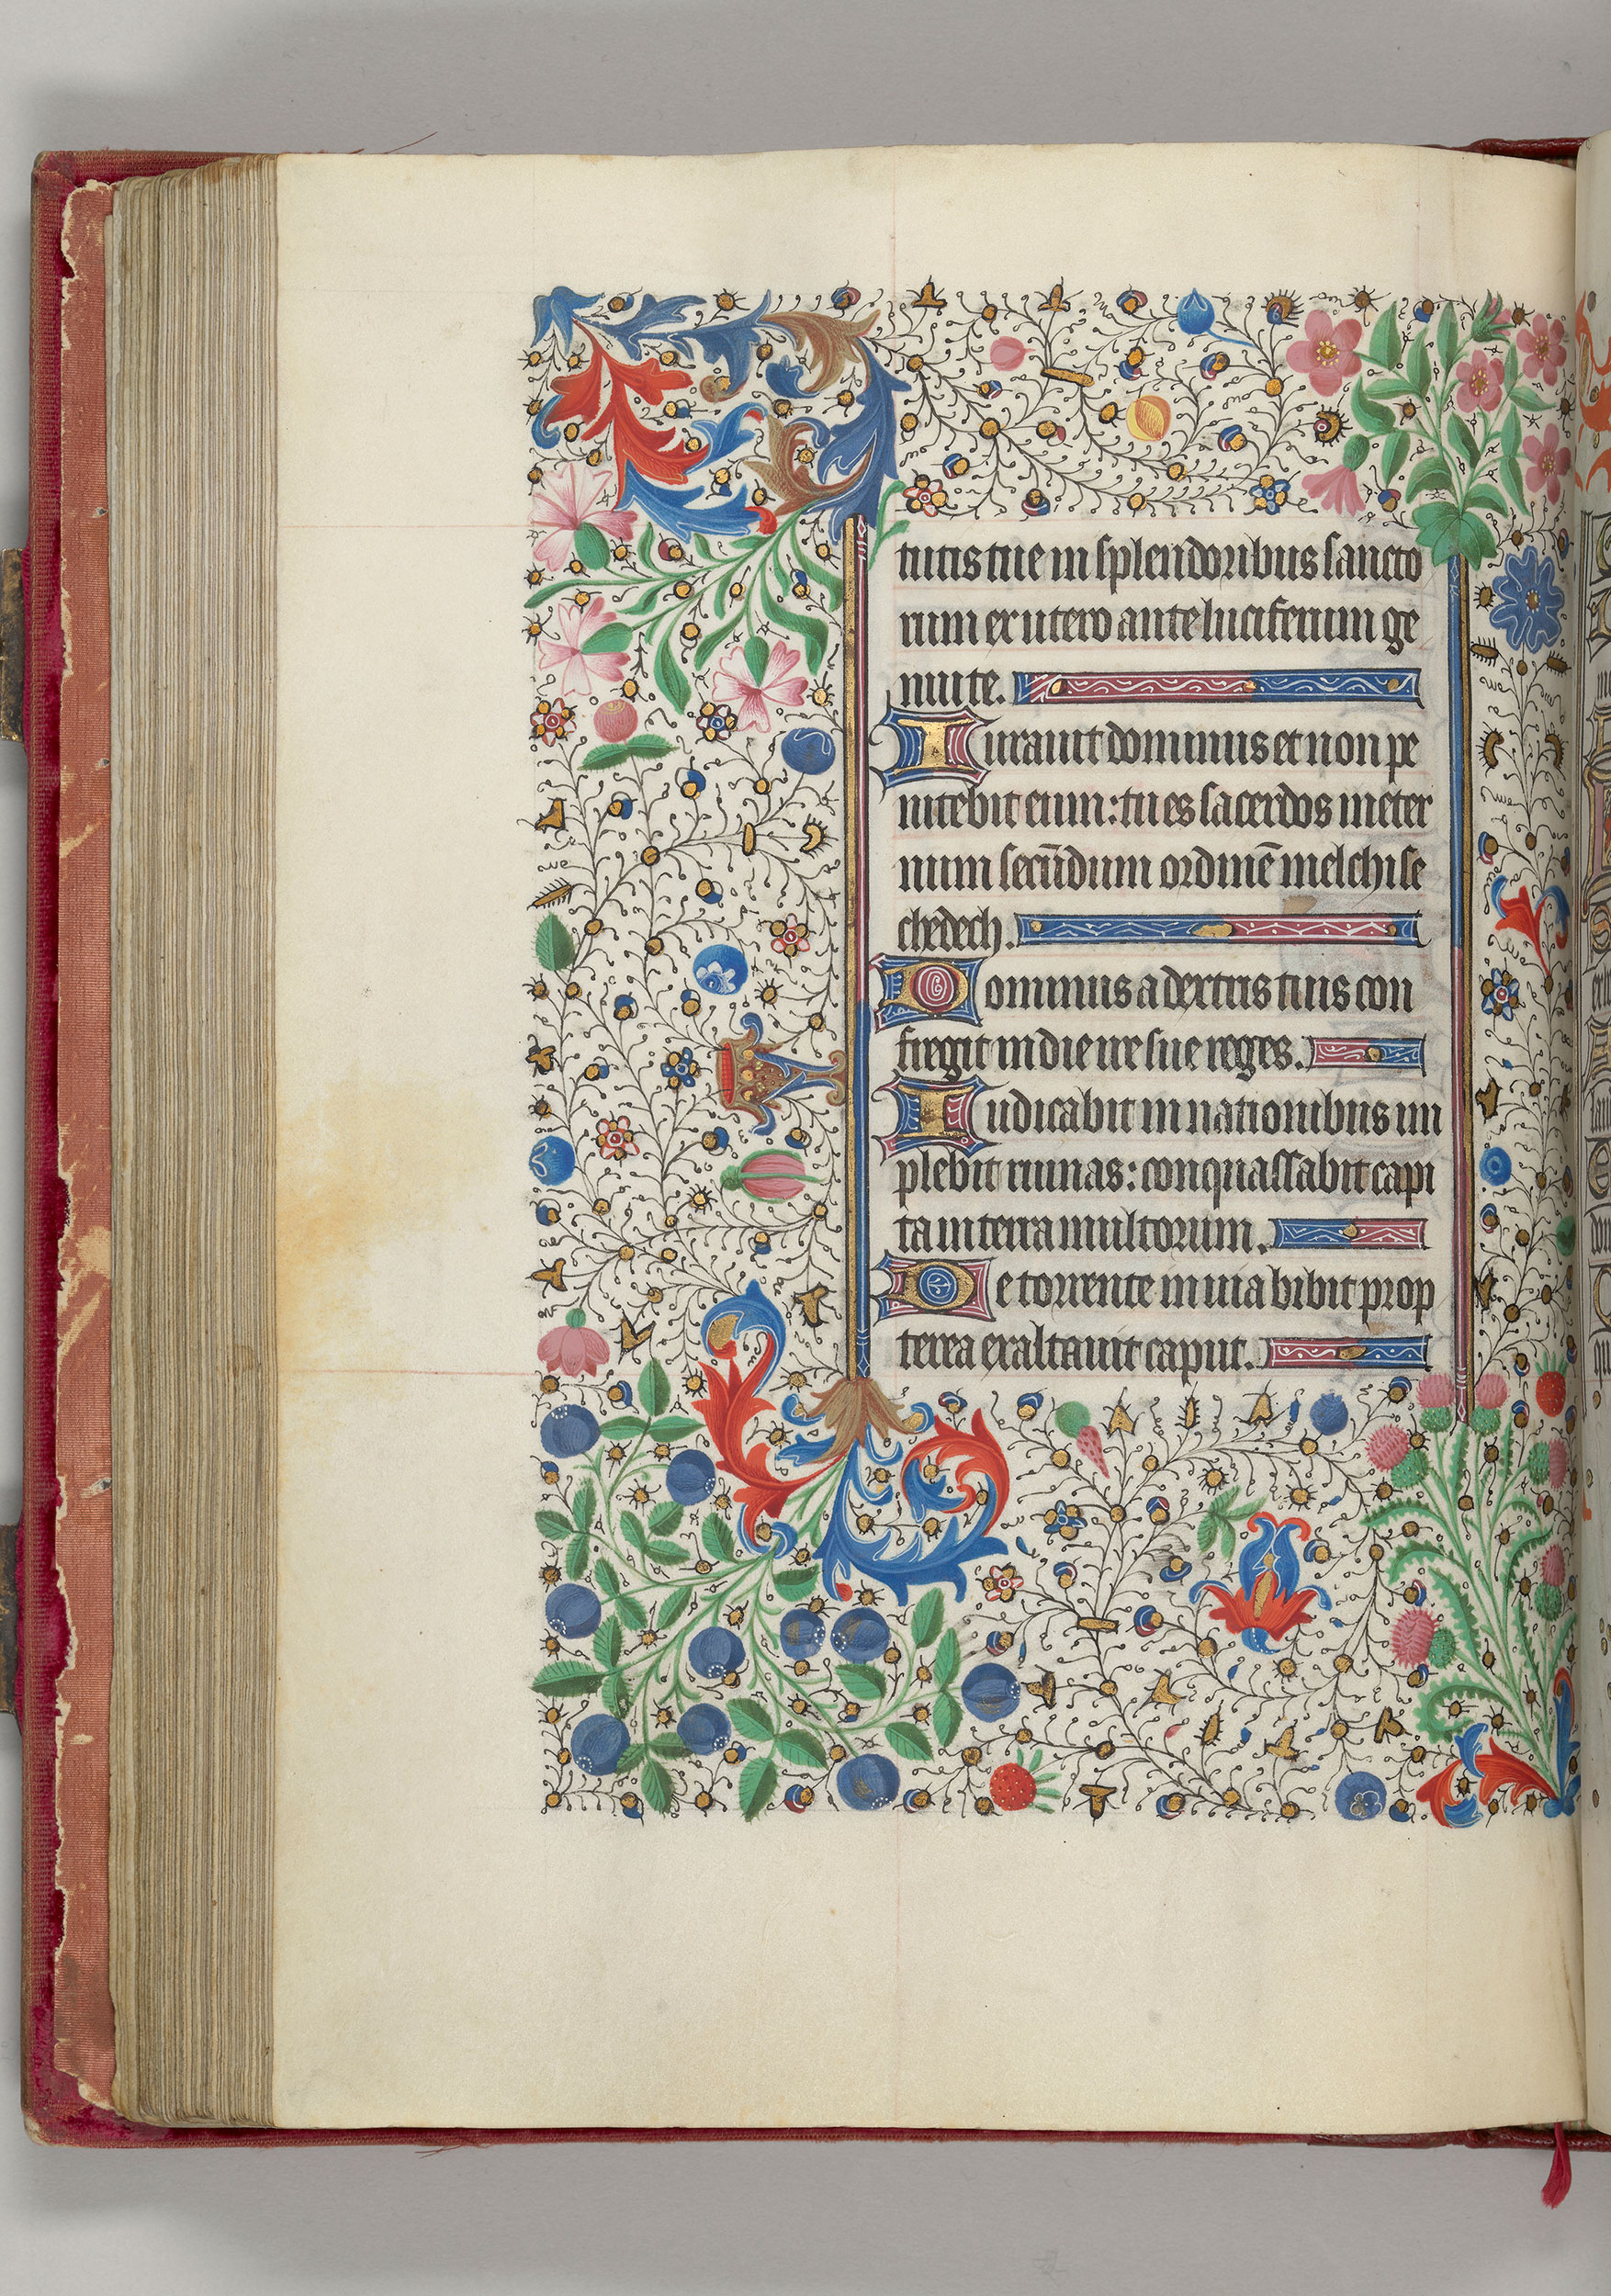 tutis tue in splendoribus sancto
rum ex utero ante luciferum ge
nui te.
Iurauit dominus et non pe
nitebit eum: tu es sacerdos in eter
num secūdum ordinē melchise
chedech.
Dominus a dextris tuis con
fregit in die ire sue reges.
Iudicabit in nationibus im
plebit ruinas: conquassabit capi
ta in terra multorum.
De torrente in uia bibit prop
terea exaltauit caput.